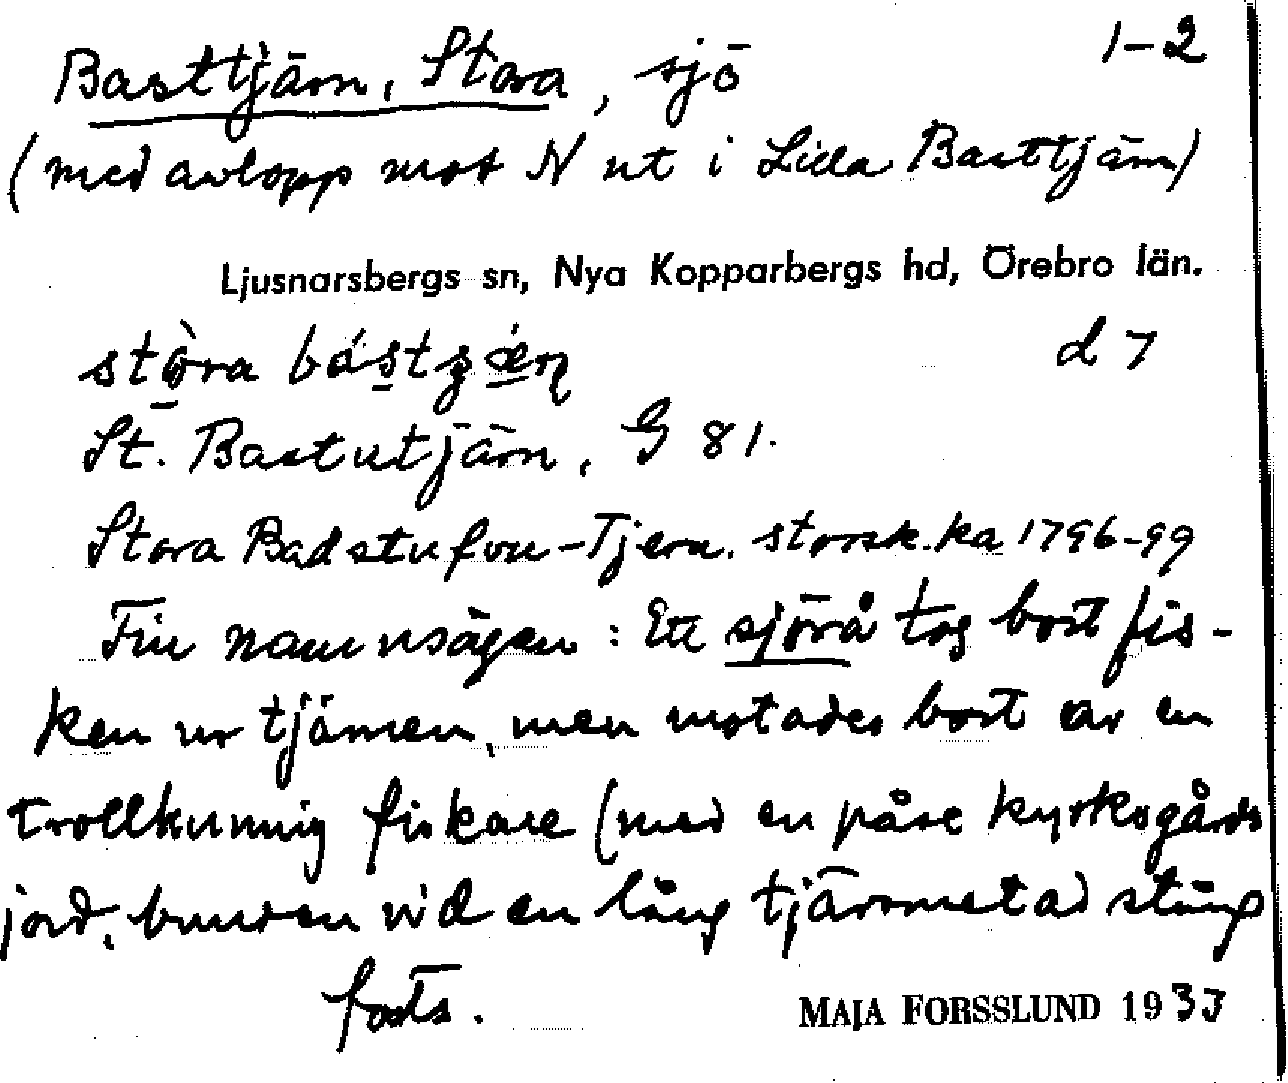 Basttjärn, Stora, sjö 1-2
(med avlopp mot N ut i Lilla Basttjärn)
Ljusnarsbergs sn, Nya Kopparbergs hd, Örebro län.
stòra d 7
St. Bastutjärn, G 81.
Stora Badstufvu-Tjern. storsk.ka 1796-99
Finn namnsägen: Ett sjörå tog bort fis-
ken ur tjärnen, men motades bort av en
trollkunnig fiskare (med en påse kyrkogårds
jord, bunden vid en lång tjärsmetad stång
forts.
MAJA FORSSLUND 193